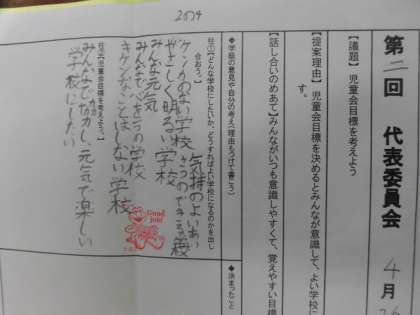 2024
第二回 代表委員会 4月26
【議題】 児童会目標を考えよう
【提案理由】 児童会目標を決めるとみんなが意識して、よい学校に
す。
【話し合いのめあて】みんながいつも意識しやすくて、覚えやすい目標
◆学級の意見や自分の考え(理由もつけて書こう)
柱①【どんな学校にしたいか、どうすればよい学校になるのかを出し
合おう。】
ケンカのない学校 気持のよいあい
やさしく明るい学校 さつのできる学校
みんな元気
みんな
キケンなことはしない学校
柱②【児童会目標を考えよう。】
みんなで協力し、元気で楽しい
学校にしたい
Good job!
◆決まったこと